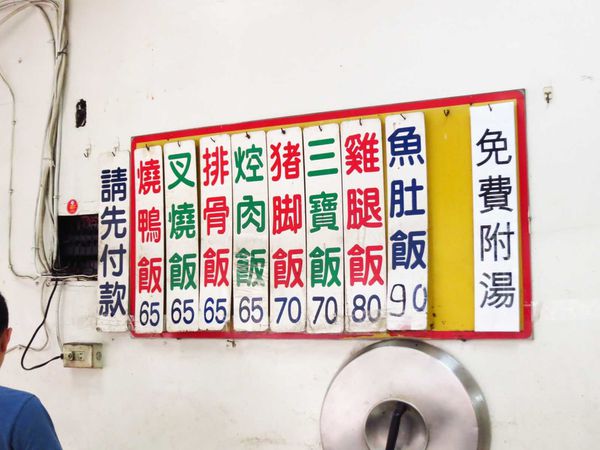 請先付款
燒鴨飯65
叉燒飯65
排骨飯65
焢肉飯65
猪脚飯70
三寶飯70
雞腿飯80
魚肚飯90
免費附湯